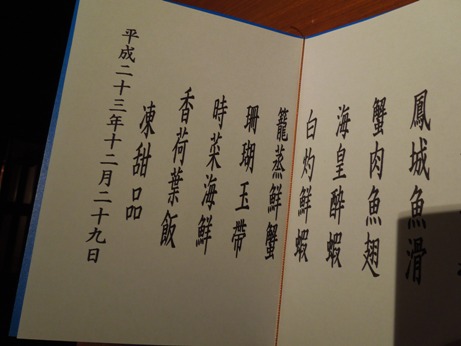 鳳城魚滑
蟹肉魚翅
海皇酔蝦
白灼鮮蝦
籠蒸鮮蟹
珊瑚玉帶
時菜海鮮
香荷葉飯
凍甜品
平成二十三年十二月二十九日